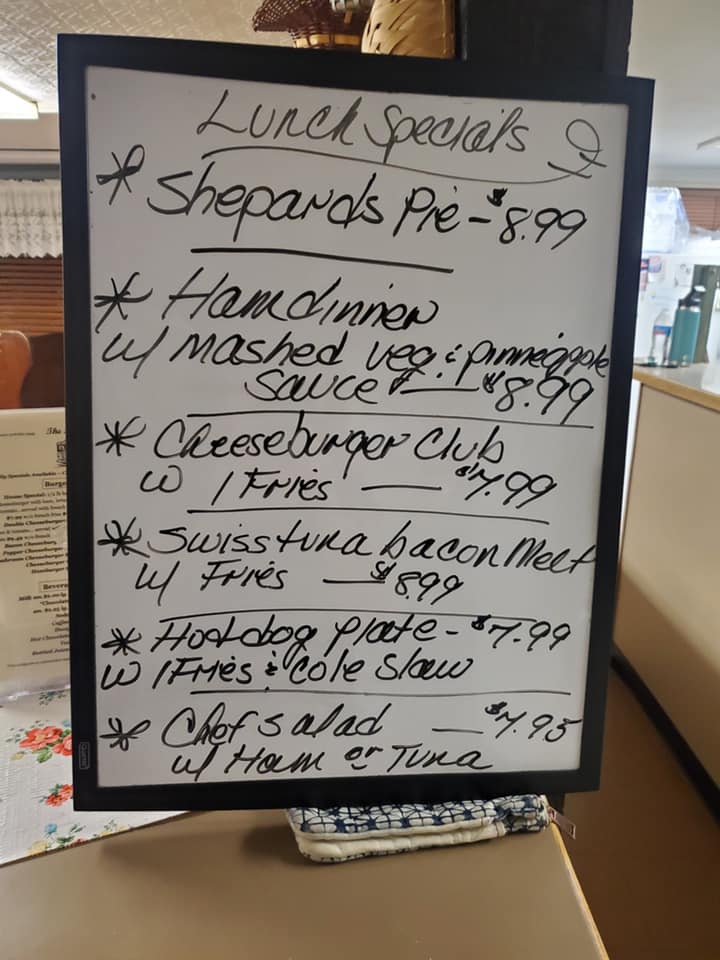 Lunch Specials
* Shepards Pie - $8.99
* Ham dinner
w/ mashed veg & pinneapple
sauce — $8.99
* Cheeseburger Club
w/ Fries — $7.99
* Swiss tuna bacon Melt
w/ Fries — $8.99
* Hotdog plate - $7.99
w/ Fries & Cole Slaw
* Chef salad — $7.95
w/ Ham or Tuna
Burge
Double Cheeseburger
Bacon Cheesebury
Pepper Cheeseburger
Bevera